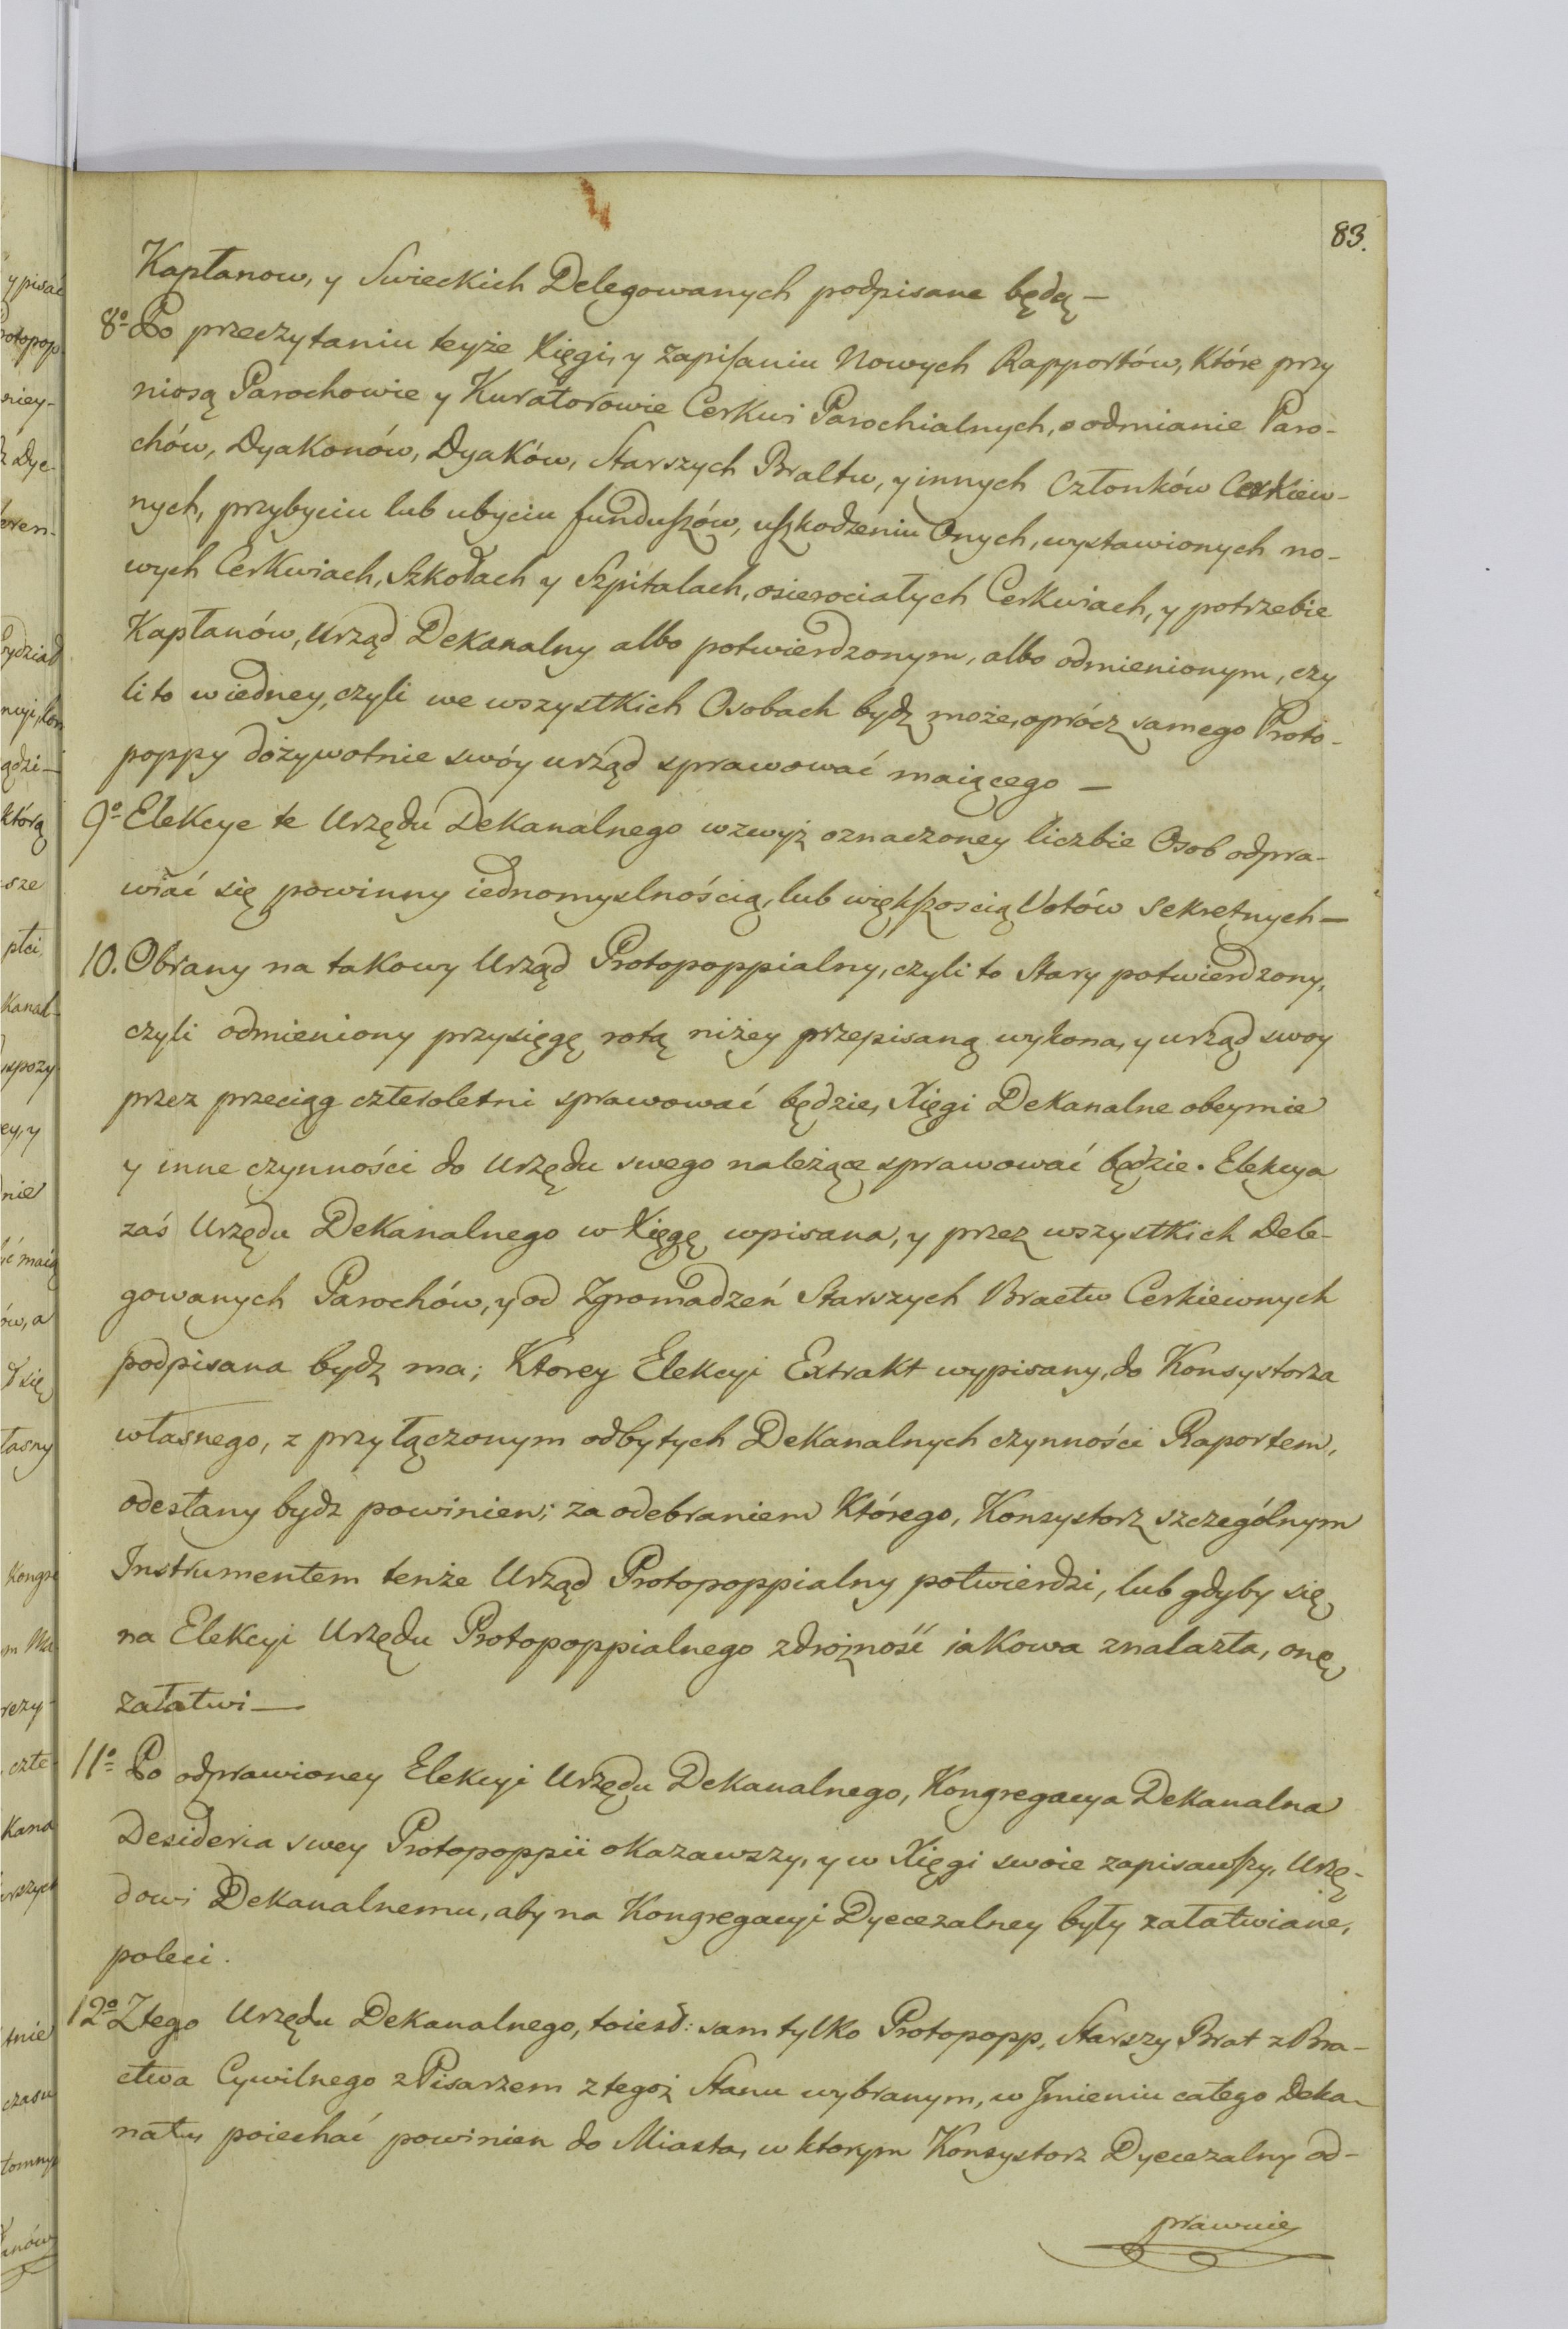 83.
Kapłanow, y Swieckich Delegowanych podpisane będą —
8o Po przeczytaniu teyże Xięgi, y zapisaniu Nowych Rapportów, które przy
niosą Parochowie y Kuratorowie Cerkwi Parochialnych, o odmianie Paro-
chów, Dyakonów, Dyaków, Starszych Bractw, y innych Członków Cerkiew-
nych, przybyciu lub ubyciu funduszów, uszkodzeniu Onych, wystawionych no-
wych Cerkwiach, Szkołach y Szpitalach, osierociałych Cerkwiach, y potrzebie
Kapłanów, Urząd Dekanalny albo potwierdzonym, albo odmienionym, czy
li to w iedney, czyli we wszystkich Osobach bydź może, oprócz samego Proto-
poppy dożywotnie swóy urząd sprawować maiącego —
9o Elekcye te Urzędu Dekanalnego wzwyż oznaczoney liczbie Osob odpra-
wiać się powinny iednomyslnością, lub większoscią Votów Sekretnych —
10. Obrany na takowy Urząd Protopoppialny, czyli to Stary potwierdzony,
czyli odmieniony przysięgę rotą niżey przepisaną wykona, y urząd swoy
przez przeciąg czteroletni sprawować będzie, Xięgi Dekanalne obeymie
y inne czynności do Urzędu swego należące sprawować będzie. Elekcya
zaś Urzędu Dekanalnego w Xięgę wpisana, y przez wszystkich Dele-
gowanych Parochów, y od Zgromadzeń Starszych Bractw Cerkiewnych
podpisana bydź ma; Ktorey Elekcyi Extrakt wypisany, do Konsystorza
własnego, z przyłączonym odbytych Dekanalnych czynności Raportem,
odesłany bydz powinien; za odebraniem Którego, Konsystorz szczególnym
Instrumentem tenże Urząd Protopoppialny potwierdzi, lub gdyby się
na Elekcyi Urzędu Protopoppialnego zdrożność iakowa znalazła, onę
załatwi —
11o Po odprawioney Elekcyi Urzędu Dekanalnego, Kongregacya Dekanalna
Desideria swey Protopoppii okazawszy, y w Xięgi swoie zapisawszy, Urzę-
dowi Dekanalnemu, aby na Kongregacyi Dyecezalney były załatwiane,
poleci.
12o Z tego Urzędu Dekanalnego, toiest: sam tylko Protopopp, Starszy Brat z Bra-
ctwa Cywilnego z Pisarzem z tegoż Stanu wybranym, w Jmieniu całego Deka-
natu, poiechać powinien do Miasta, w ktorym Konsystorz Dyecezalny od-
prawuie